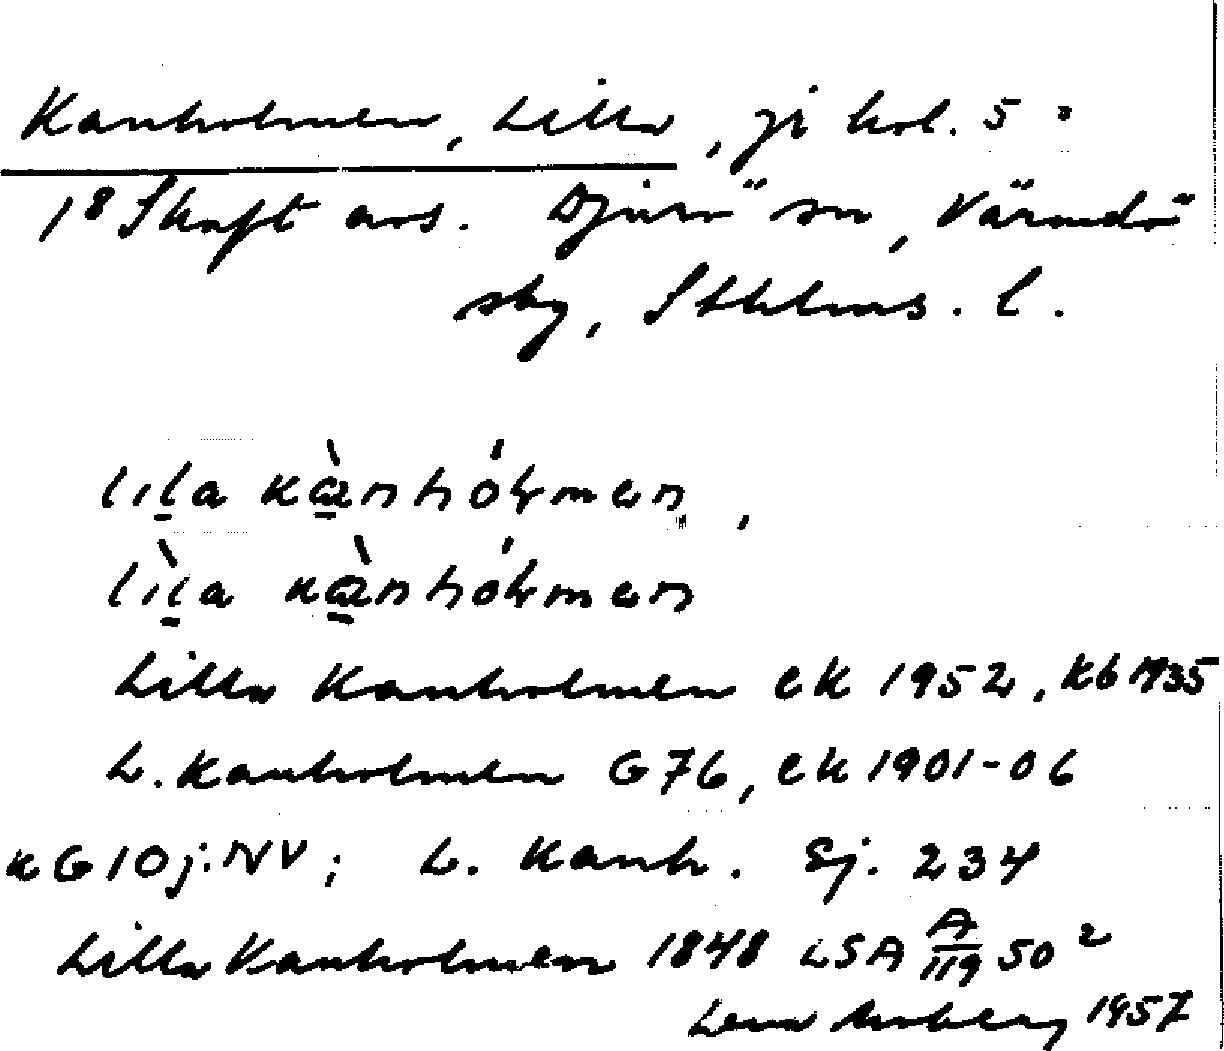 Kanholmen, Lilla, på kol. 5:
18 Skaft ars. Djurö sn, Värmdö
sbg, Sthlms. l.
lila kànhólmen,
lìla kànhólmen
Lilla Kanholmen ek 1952, kb 1935
L. Kanholmen G76, ek 1901-06
KG 10 j. NV; L. Kanh. Sj. 234
Lilla Kanholmen 1848 LSA A/119 50²
Lena Moberg 1957